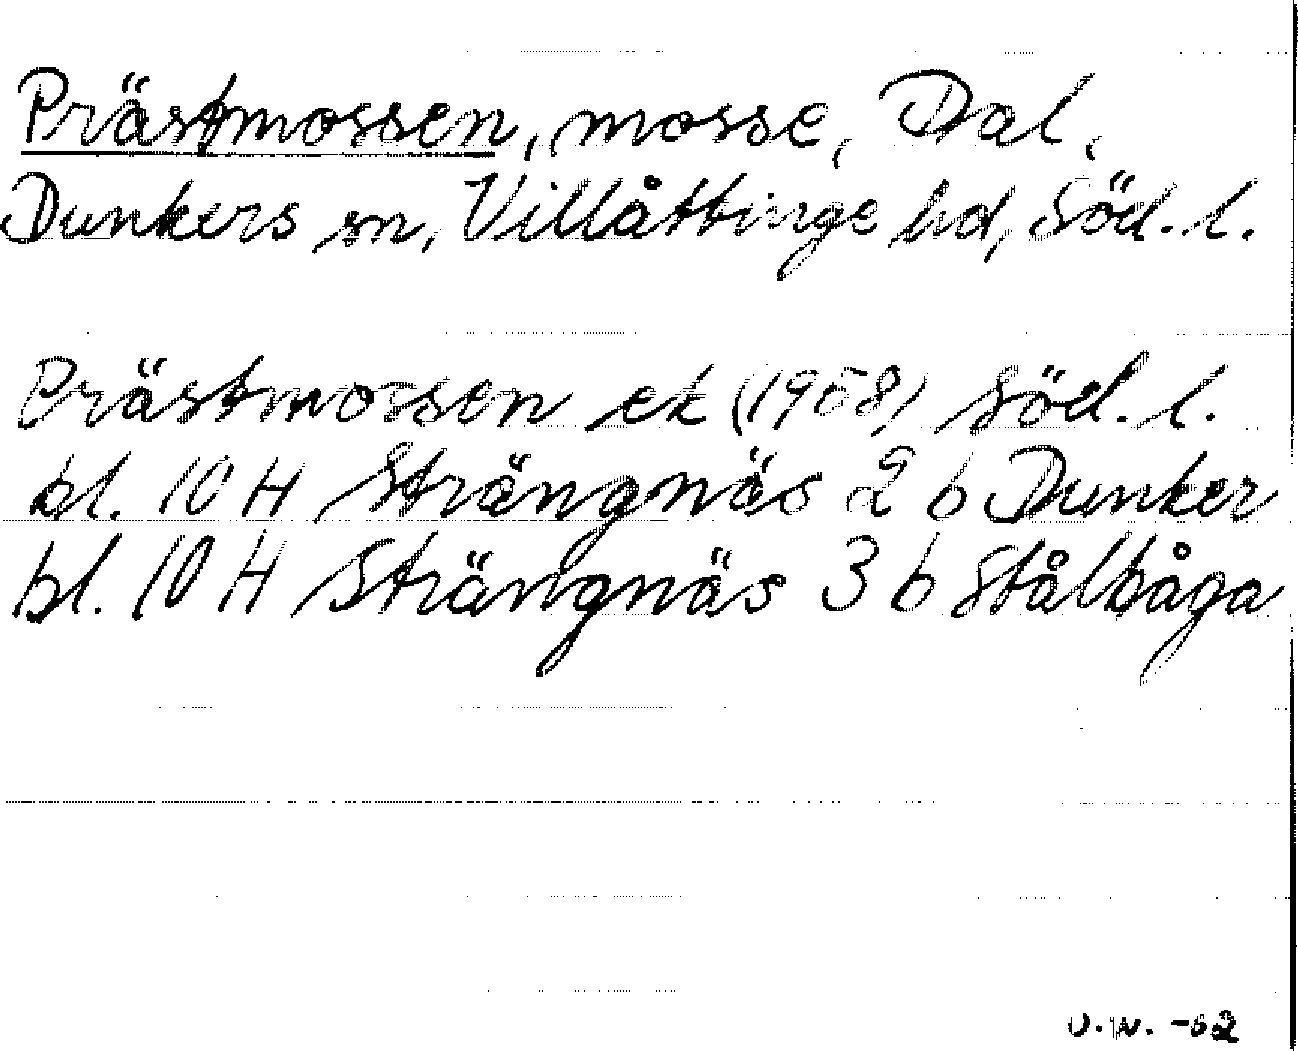 Prästmossen, mosse, Dal,
Dunkers sn, Villåttinge hd, Söd. l.
Prästmossen ek (1958) Söd. l.
bl. 10 H Strängnäs 2 b Dunker
bl. 10 H Strängnäs 3 b Stålbåga